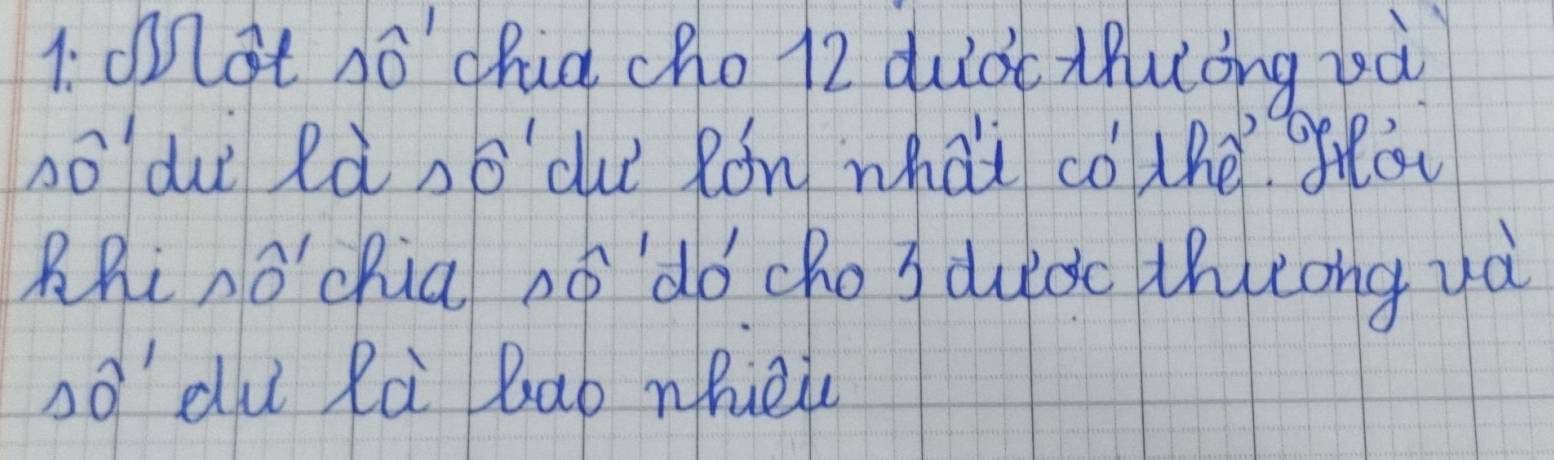 1: Một số chia cho 12 được thương và
số dư là số dư lớn nhất có thể. Hỏi
khi số chia số đó cho 3 được thương và
số dư là bao nhiêu